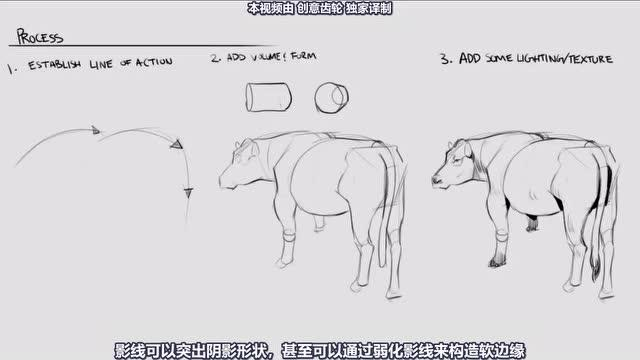 本视频由 创意齿轮 独家译制
PROCESS
1. ESTABLISH LINE OF ACTION
2. ADD VOLUME & FORM
3. ADD SOME LIGHTING/TEXTURE
影线可以突出阴影形状，甚至可以通过弱化影线来构造软边缘